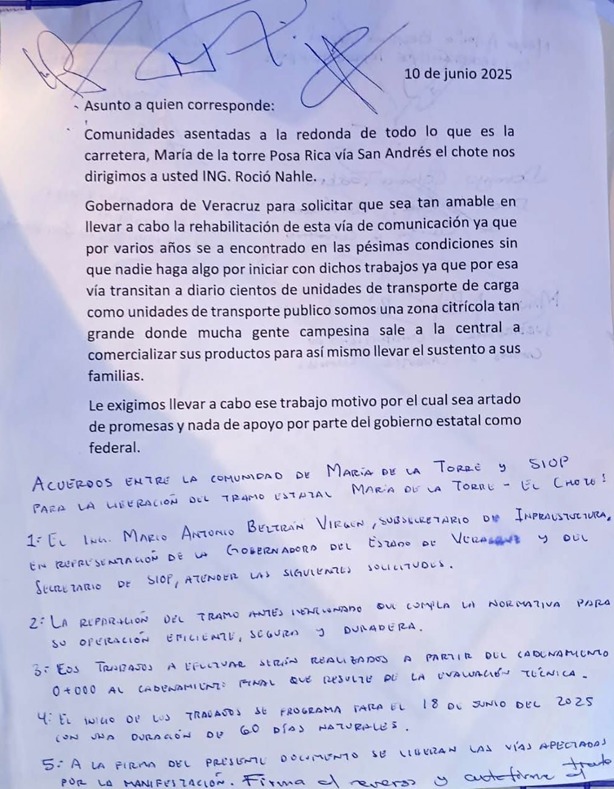 10 de junio 2025
Asunto a quien corresponde:
Comunidades asentadas a la redonda de todo lo que es la
carretera, María de la torre Posa Rica vía San Andrés el chote nos
dirigimos a usted ING. Roció Nahle.
Gobernadora de Veracruz para solicitar que sea tan amable en
llevar a cabo la rehabilitación de esta vía de comunicación ya que
por varios años se a encontrado en las pésimas condiciones sin
que nadie haga algo por iniciar con dichos trabajos ya que por esa
vía transitan a diario cientos de unidades de transporte de carga
como unidades de transporte publico somos una zona citrícola tan
grande donde mucha gente campesina sale a la central a
comercializar sus productos para así mismo llevar el sustento a sus
familias.
Le exigimos llevar a cabo ese trabajo motivo por el cual sea artado
de promesas y nada de apoyo por parte del gobierno estatal como
federal.
ACUERDOS ENTRE LA COMUNIDAD DE MARÍA DE LA TORRE Y SIOP
PARA LA LIBERACIÓN DEL TRAMO ESTATAL MARÍA DE LA TORRE - EL CHOTE:
1.- EL ING. MARIO ANTONIO BELTRÁN VIRGEN, SUBSECRETARIO DE INFRAESTUCTURA,
EN REPRESENTACIÓN DE LA GOBERNADORA DEL ESTADO DE VERACRUZ Y DEL
SECRETARIO DE SIOP, ATENDER LAS SIGUIENTES SOLICITUDES.
2.- LA REPARACIÓN DEL TRAMO ANTES MENCIONADO QUE CUMPLA LA NORMATIVA PARA
SU OPERACIÓN EFICIENTE, SEGURA Y DURADERA.
3.- LOS TRABAJOS A EFECTUAR SERÁN REALIZADOS A PARTIR DEL CADENAMIENTO
0+000 AL CADENAMIENTO FINAL QUE RESULTE DE LA EVALUACIÓN TÉCNICA.
4.- EL INICIO DE LOS TRABAJOS SE PROGRAMA PARA EL 18 DE JUNIO DEL 2025
CON UNA DURACIÓN DE 60 DÍAS NATURALES.
5.- A LA FIRMA DEL PRESENTE DOCUMENTO SE LIBERAN LAS VÍAS AFECTADAS
POR LA MANIFESTACIÓN. Firma al reverso y